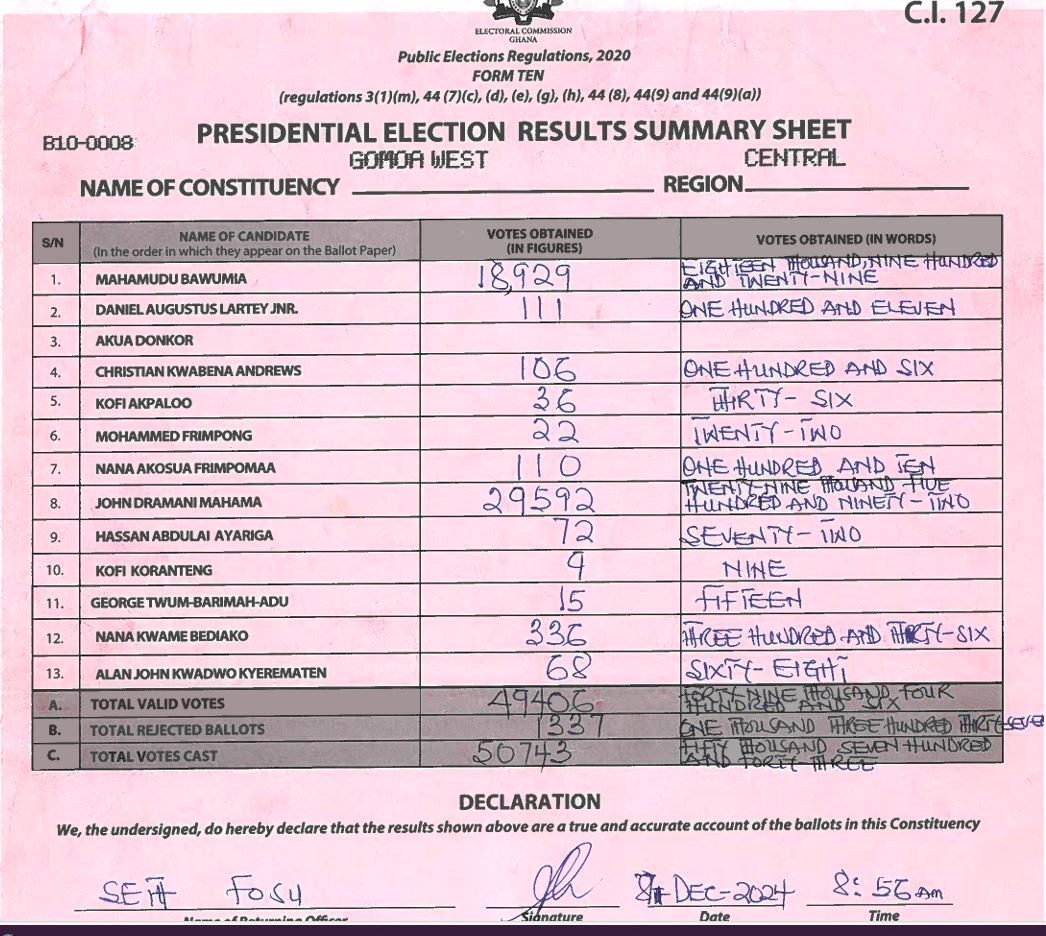 C.I. 127
ELECTORAL COMMISSION
GHANA
Public Elections Regulations, 2020
FORM TEN
(regulations 3(1)(m), 44 (7)(c), (d), (e), (g), (h), 44 (8), 44(9) and 44(9)(a))
B10-0008
PRESIDENTIAL ELECTION RESULTS SUMMARY SHEET
GOMOA WEST CENTRAL
NAME OF CONSTITUENCY REGION
S/N NAME OF CANDIDATE (In the order in which they appear on the Ballot Paper) VOTES OBTAINED (IN FIGURES) VOTES OBTAINED (IN WORDS)
1. MAHAMUDU BAWUMIA 18,929 EIGHTEEN THOUSAND, NINE HUNDRED AND TWENTY-NINE
2. DANIEL AUGUSTUS LARTEY JNR. 111 ONE HUNDRED AND ELEVEN
3. AKUA DONKOR
4. CHRISTIAN KWABENA ANDREWS 106 ONE HUNDRED AND SIX
5. KOFI AKPALOO 36 THIRTY-SIX
6. MOHAMMED FRIMPONG 22 TWENTY-TWO
7. NANA AKOSUA FRIMPOMAA 110 ONE HUNDRED AND TEN
8. JOHN DRAMANI MAHAMA 29592 TWENTY-NINE THOUSAND FIVE HUNDRED AND NINETY-TWO
9. HASSAN ABDULAI AYARIGA 72 SEVENTY-TWO
10. KOFI KORANTENG 9 NINE
11. GEORGE TWUM-BARIMAH-ADU 15 FIFTEEN
12. NANA KWAME BEDIAKO 336 THREE HUNDRED AND THIRTY-SIX
13. ALAN JOHN KWADWO KYEREMATEN 68 SIXTY-EIGHT
A. TOTAL VALID VOTES 49406 FORTY-NINE THOUSAND FOUR HUNDRED AND SIX
B. TOTAL REJECTED BALLOTS 1337 ONE THOUSAND THREE HUNDRED THIRTY-SEVEN
C. TOTAL VOTES CAST 50743 FIFTY THOUSAND SEVEN HUNDRED AND FORTY-THREE
DECLARATION
We, the undersigned, do hereby declare that the results shown above are a true and accurate account of the ballots in this Constituency
SETH FOSU 8TH DEC-2024 8:56 AM
Name of Returning Officer Signature Date Time